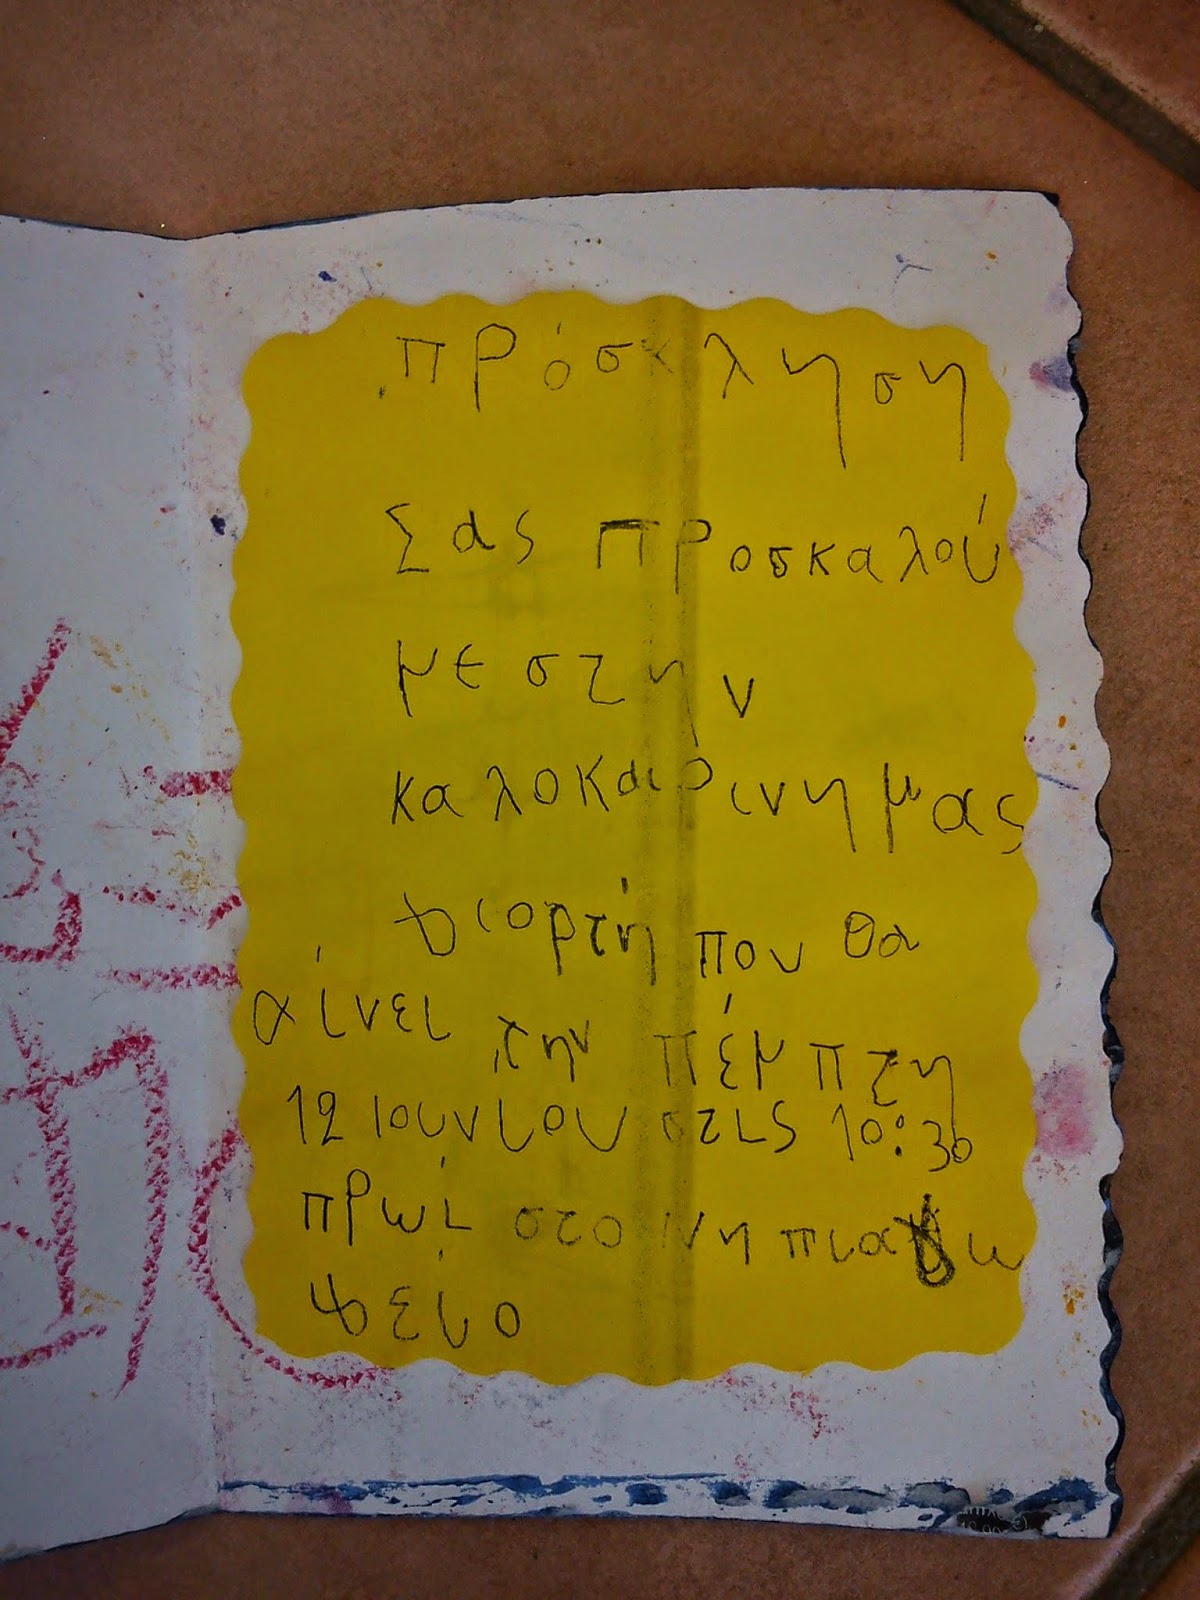 πρόσκληση
Σας προσκαλού
με στην
καλοκαιρινη μας
γιορτή που θα
γίνει την πέμπτη
12 ιουνίου στις 10:30
πρωί στο νηπιαγω
γείο